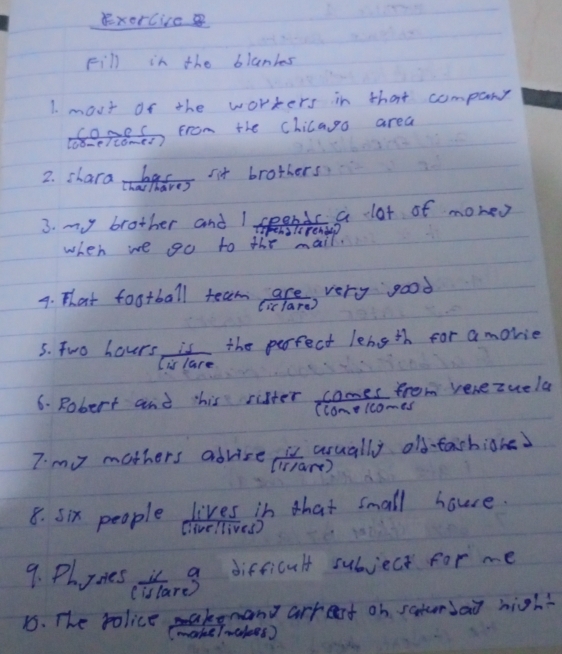 Exercise
Fill in the blanks
1. most of the workers in that company
comes from the Chicago area
(come/comes)
2. shara has six brothers
(has/have)
3. my brother and I spends a lot of money
(spend/spends)
when we go to the mail.
4. That football team are very good
(is/are)
5. Two hours is the perfect length for a movie
(is/are
6. Robert and his sister comes from venezuela
(come/comes
7. my mothers advise is usually old-fashioned
(is/are)
8. six people lives in that small house.
(live/lives)
9. Physics is a difficult subject for me
(is/are)
10. The police make many arrest on saturday night
(make/makes)